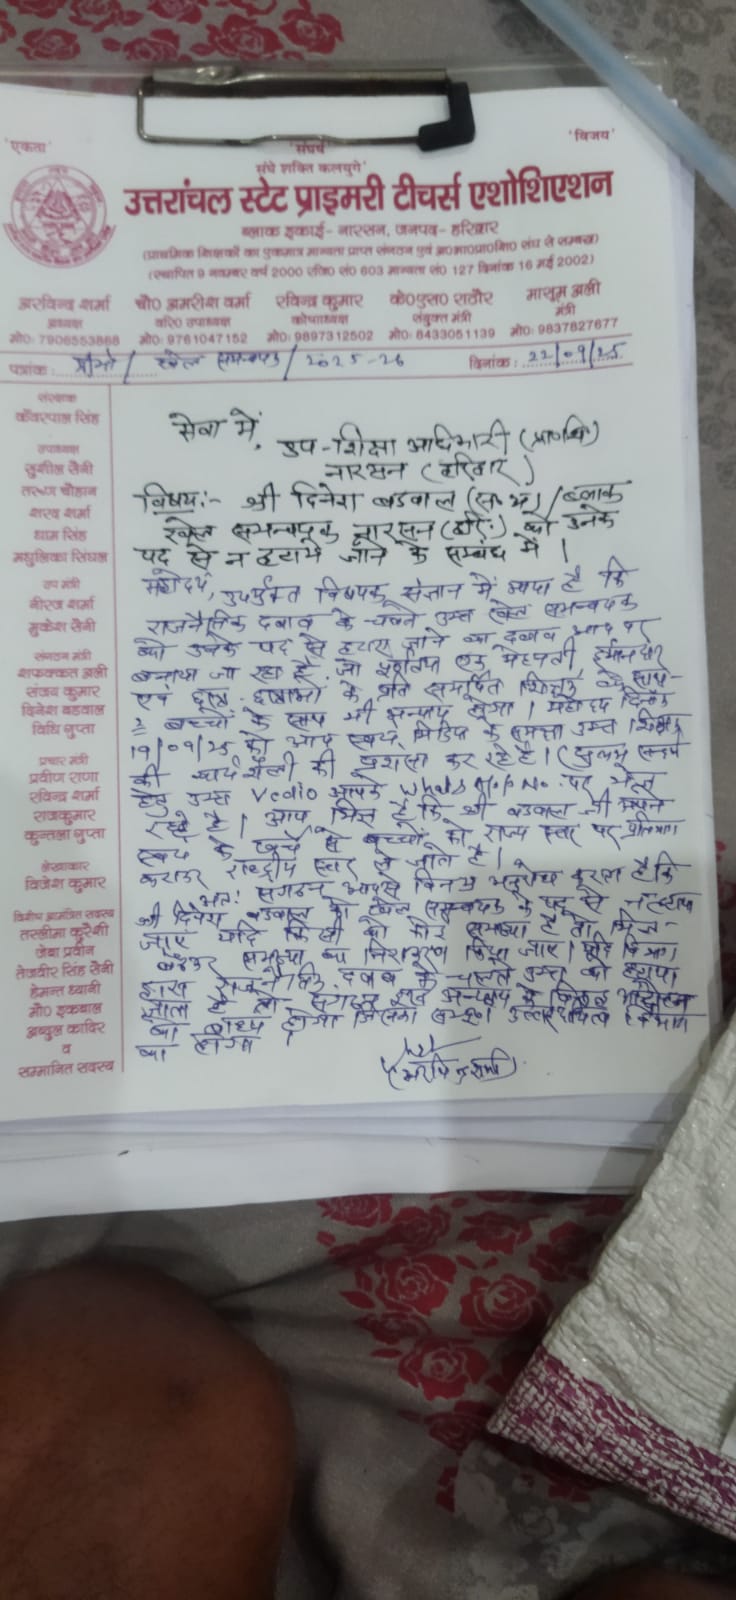 'एकता' 'संघर्ष' 'विजय'
संघे शक्ति कलयुगे'
उत्तरांचल स्टेट प्राइमरी टीचर्स एशोशिएशन
ब्लाक इकाई- नारसन, जनपद- हरिद्वार
(प्राथमिक शिक्षकों का एकमात्र मान्यता प्राप्त संगठन एवं अ०भा०प्रा०शि० संघ से सम्बद्ध)
(स्थापित 9 नवम्बर वर्ष 2000 रजि० सं० 603 मान्यता सं० 127 दिनांक 16 मई 2002)
अरविन्द शर्मा चौ० अमरीश वर्मा रविन्द्र कुमार के०एस० राठौर मासूम अली
अध्यक्ष वरि० उपाध्यक्ष कोषाध्यक्ष संयुक्त मंत्री मंत्री
मो०: 7906553868 मो०: 9761047152 मो०: 9897312502 मो०: 8433051139 मो०: 9837827677
पत्रांक: / खेल समन्वयक / 2025-26 दिनांक: 22/09/25
संरक्षक
कँवरपाल सिंह
उपाध्यक्ष
सुशील सैनी
तरूण चौहान
शरद शर्मा
धाम सिंह
मधुलिका सिंघल
उप मंत्री
नीरज शर्मा
मुकेश सैनी
संगठन मंत्री
शफक्कत अली
संजय कुमार
दिनेश बडवाल
विधि गुप्ता
प्रचार मंत्री
प्रवीण राणा
रविन्द्र शर्मा
राजकुमार
कुन्तला गुप्ता
लेखाकार
विजेश कुमार
विशेष आमंत्रित सदस्य
तस्लीमा कुरैशी
जेबा प्रवीन
तेजवीर सिंह सैनी
हेमन्त ध्यानी
मो० इकबाल
अब्दुल कादिर
व
सम्मानित सदस्य
सेवा में,
उप-शिक्षा अधिकारी (प्रा०शि०)
नारसन (हरिद्वार)
विषय:- श्री दिनेश बडवाल (स.अ) / ब्लाक
खेल समन्वयक नारसन (हरि०) को उनके
पद से न हटाये जाने के सम्बंध में।
महोदय, उपर्युक्त विषयक संज्ञान में आया है कि
राजनैतिक दबाव के चलते उक्त खेल समन्वयक
को उनके पद से हटाए जाने का दबाव आप पर
बनाया जा रहा है. जो एक मेहनती ईमानदार
एवं छात्र-छात्राओं के प्रति समर्पित शिक्षक के साथ-
२ बच्चों के साथ भी अन्याय होगा। महोदय दिनांक
19/09/25 को आप स्वयं मिडिया के समक्ष उक्त शिक्षक
की कार्य शैली की प्रशंसा कर रहे है। (सुलभ सन्दर्भ
हेतु उक्त Vedio आपके WhatsApp No. पर भेज
रहे है। आप भिज्ञ है कि श्री बडवाल जी अपने
स्वयं के खर्चे से बच्चों को राज्य स्तर पर प्रतिभाग
कराकर राष्ट्रीय स्तर ले जाते है।
अत: संगठन आपसे विनम्र अनुरोध करता है कि
श्री दिनेश बडवाल को खेल समन्वयक के पद से न हटाया
जाए यदि किसी को कोई समस्या है तो मिल-
बैठकर समस्या का निराकरण किया जाए। यदि
राजनैतिक दबाव के चलते उक्त को हटाया
जाता है तो संगठन इस अन्याय के विरूद्ध आंदोलन
को बाध्य होगा जिसका सम्पूर्ण उत्तरदायित्व विभाग
का होगा।
(अरविन्द शर्मा)